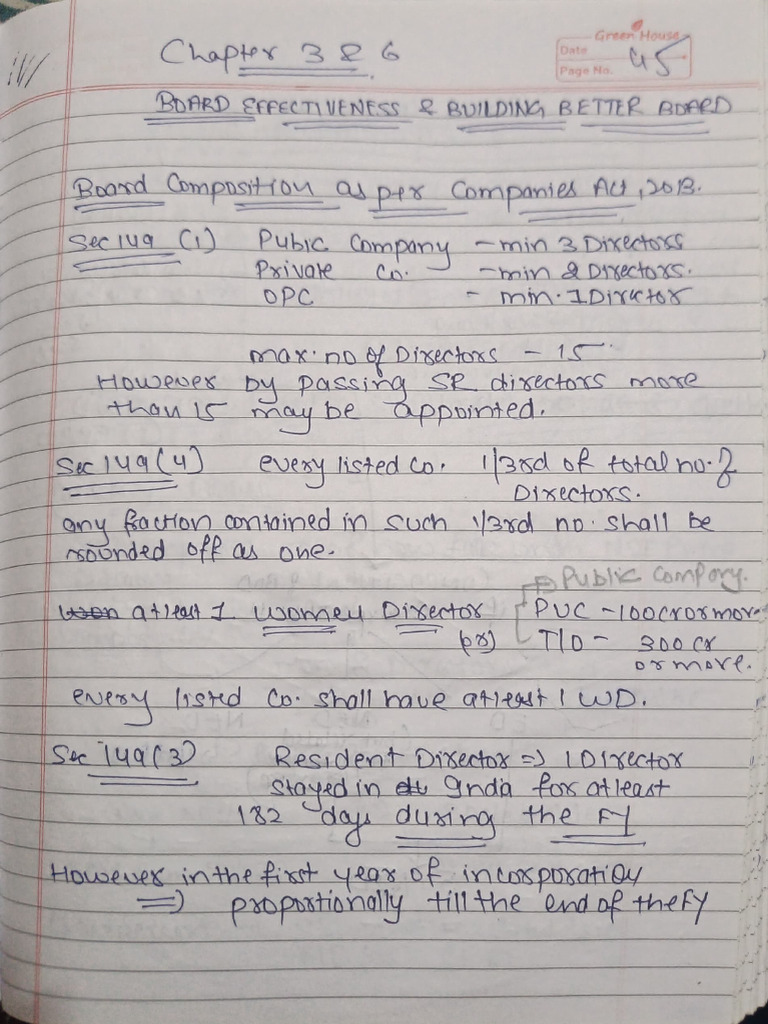 Chapter 3 & 6
Green House
Date
Page No. 45
BOARD EFFECTIVENESS & BUILDING BETTER BOARD
Board Composition as per Companies Act, 2013.
Sec 149 (1) Pubic Company - min 3 Directors
Private Co. - min 2 Directors.
OPC - min. 1 Director
max. no of Directors - 15
However by passing SR directors more
than 15 may be appointed.
Sec 149(4) every listed Co. 1/3rd of total no. of
Directors.
any fraction contained in such 1/3rd no. shall be
rounded off as one.
Public Company.
atleast 1 women Director PUC - 100 cr or more
(or) T/O - 300 cr
or more.
every listed Co. shall have atleast 1 WD.
Sec 149(3) Resident Director => 1 Director
stayed in India for atleast
182 days during the FY
However in the first year of incorporation
=> proportionally till the end of the FY